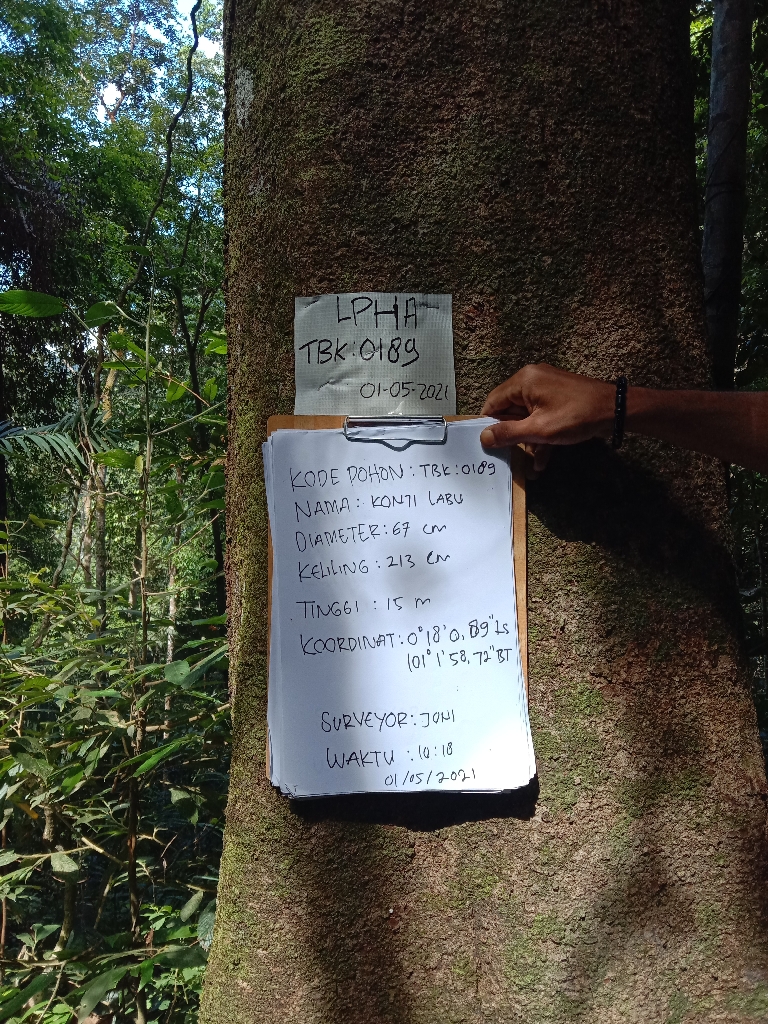 LPHA
TBK:0189
01-05-2021
KODE POHON : TBK : 0189
NAMA : KONTI LABU
DIAMETER : 67 cm
KELILING : 213 cm
TINGGI : 15 m
KOORDINAT : 0° 18' 0,89" LS
101° 1' 58,72" BT
SURVEYOR : JONI
WAKTU : 10:18
01/05/2021